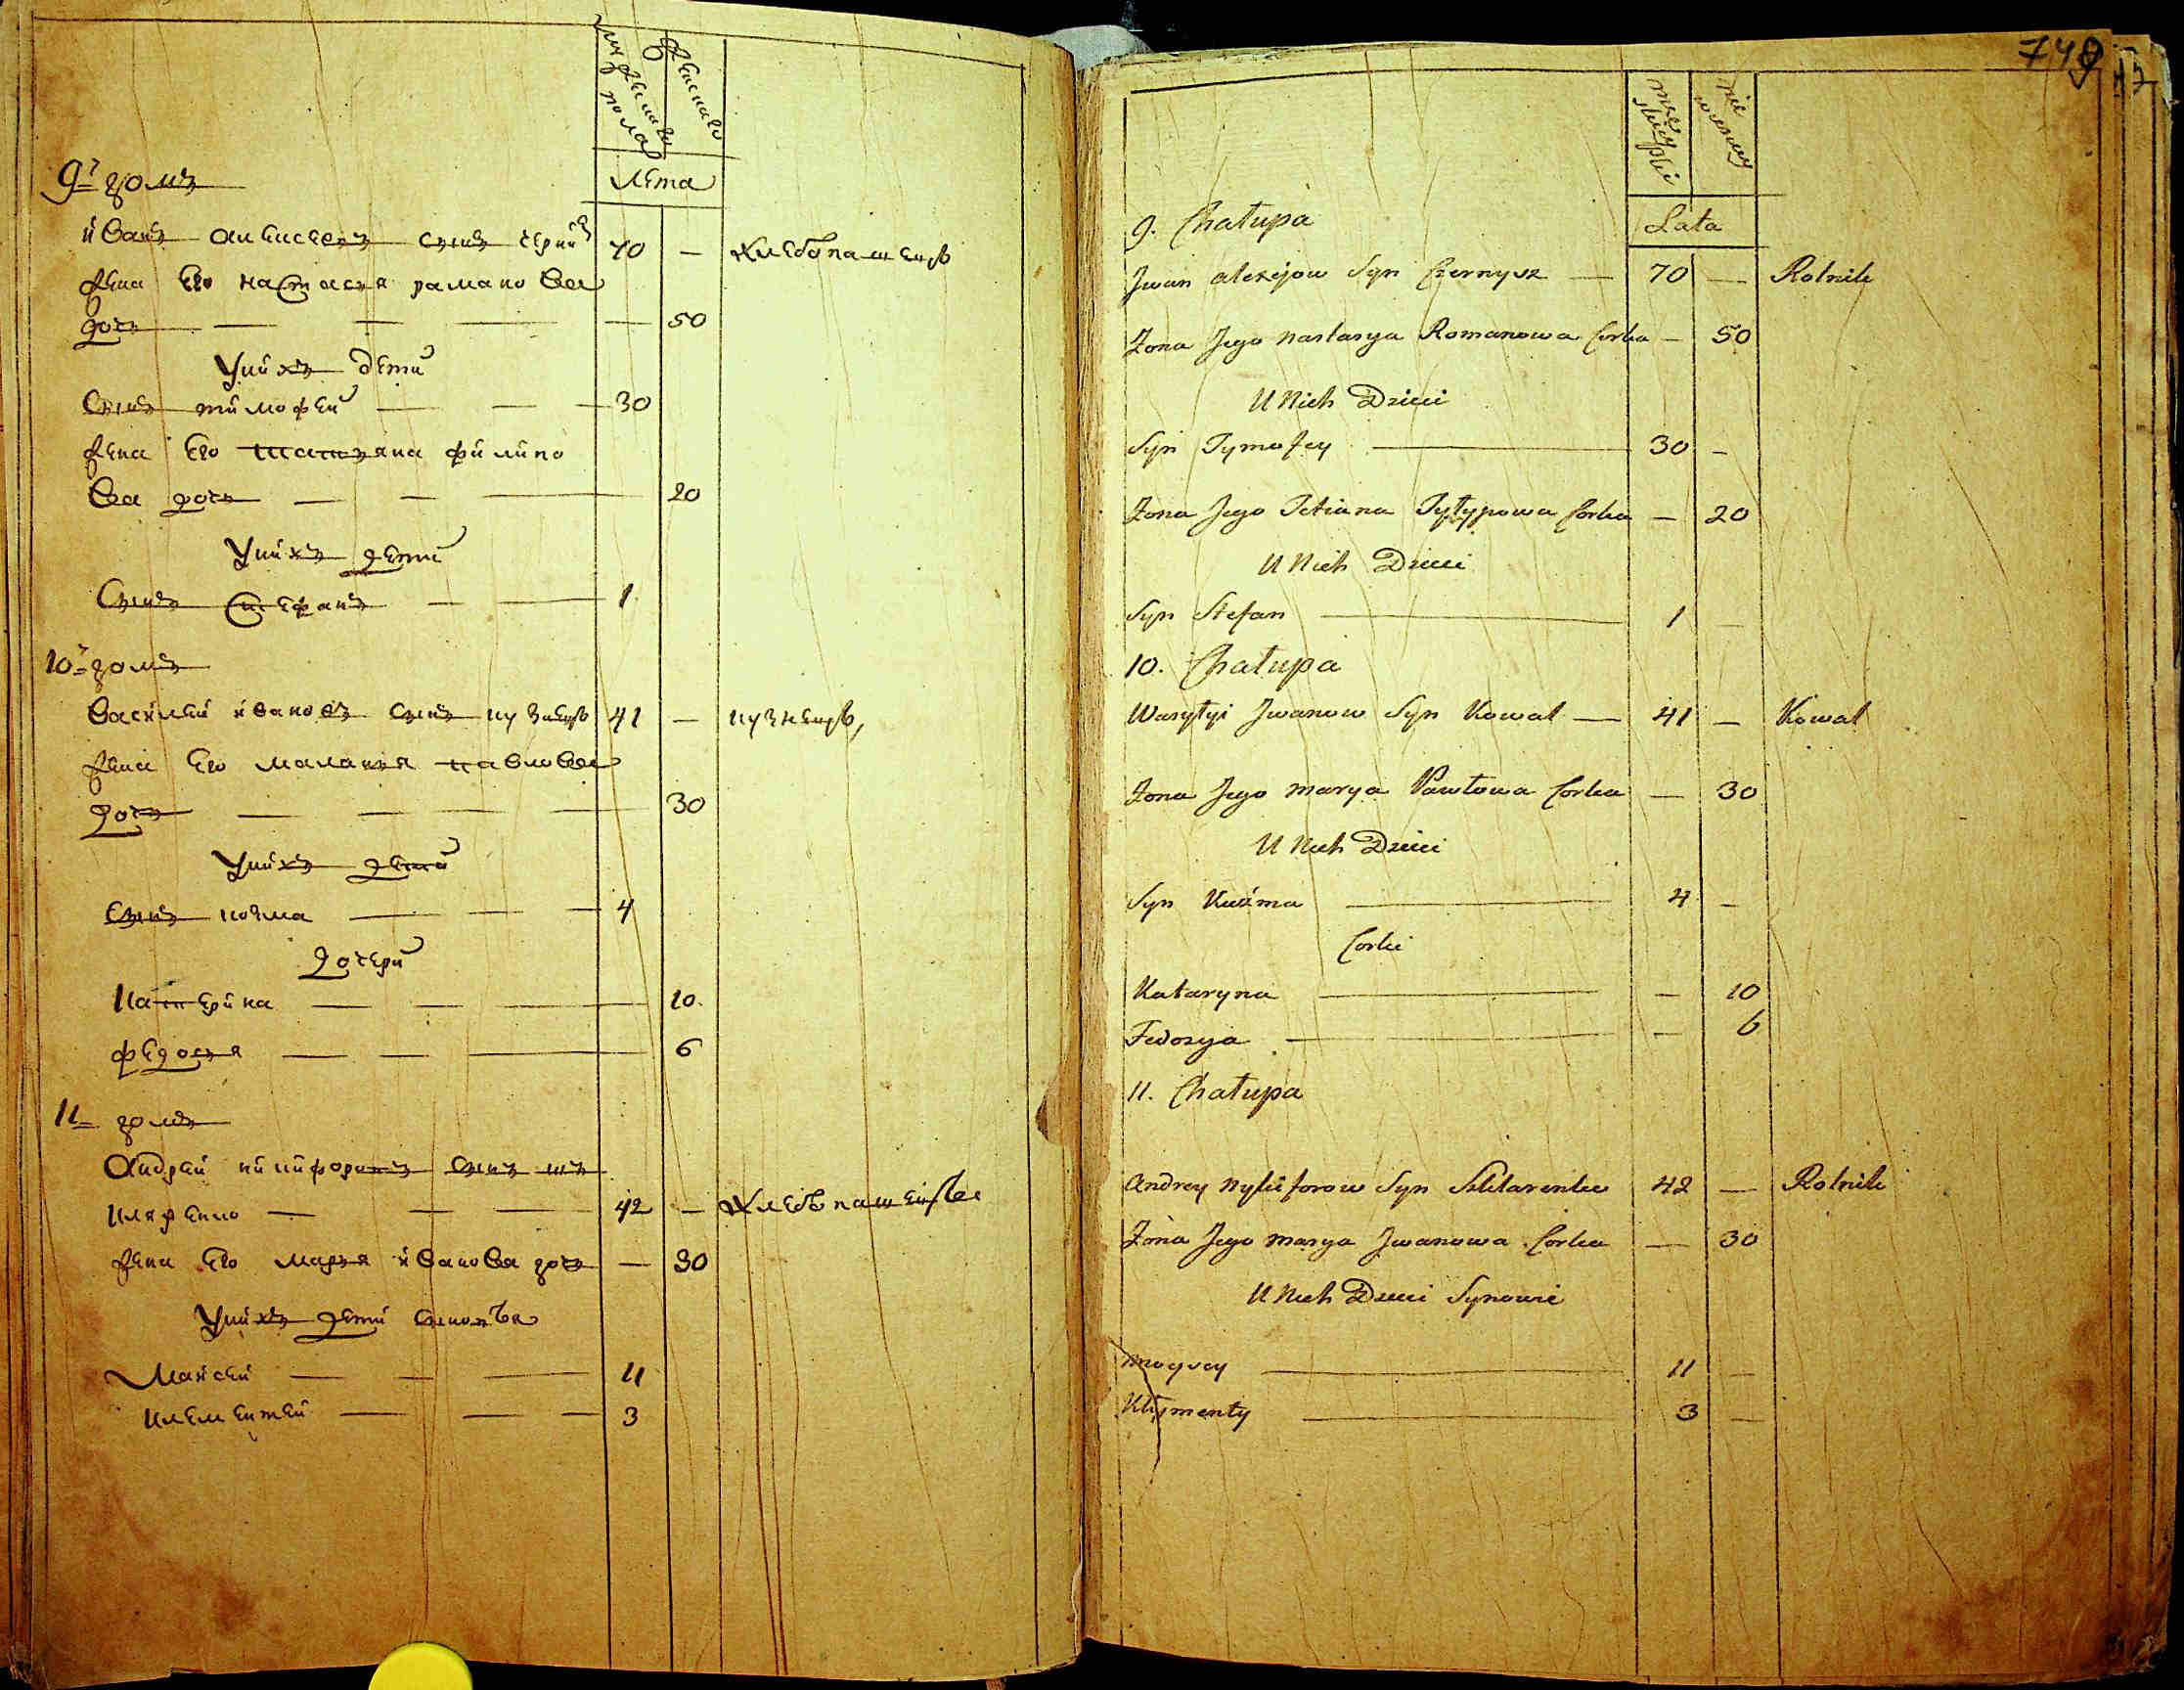 мужеска
пола
женска
лета
9й домъ
иванъ алексеевъ сынъ черниш 70 — хлебопашецъ
жена его настасья романова
дочь — — — — 50
у нихъ дети
сынъ тимофей — — 30
жена его татияна филипо
ва дочь — — — 20
у нихъ дети
сынъ стефанъ — — 1
10й домъ
василей ивановъ сынъ кузнецъ 41 — кузнецъ,
жена его маланья павлова
дочь — — — 30
у нихъ дети
сынъ козма — — — 4
дочери
катерина — — — 10
федосья — — — 6
11 домъ
андрей никифоринъ сынъ шъ
кляренко — — — 42 — хлебопашецъ
жена его марья иванова дочь — 30
у нихъ дети синовья
майсей — — — 11
клементей — — — 3
749
Lata
9. Chałupa
Jwan alexejow Syn Czernysz — 70 — Rolnik
Żona Jego nastasya Romanowa Corka — 50
U Nich Dzieci
Syn Tymofey — 30 —
Żona Jego Tetiana Pyłypowa Corka — 20
U Nich Dzieci
Syn Stefan — 1 —
10. Chałupa
Wasyłyi Jwanow Syn Kowal — 41 — Kowal
Żona Jego marya Pawłowa Corka — 30
U Nich Dzieci
Syn Kuźma — 4 —
Corki
Kataryna — — 10
Fedosya — — 6
11. Chałupa
Andrey Nykiforow Syn Szklarenko 42 — Rolnik
Żona Jego marya Jwanowa Corka — 30
U Nich Dzieci Synowie
moysey — 11 —
Kłymenty — 3 —